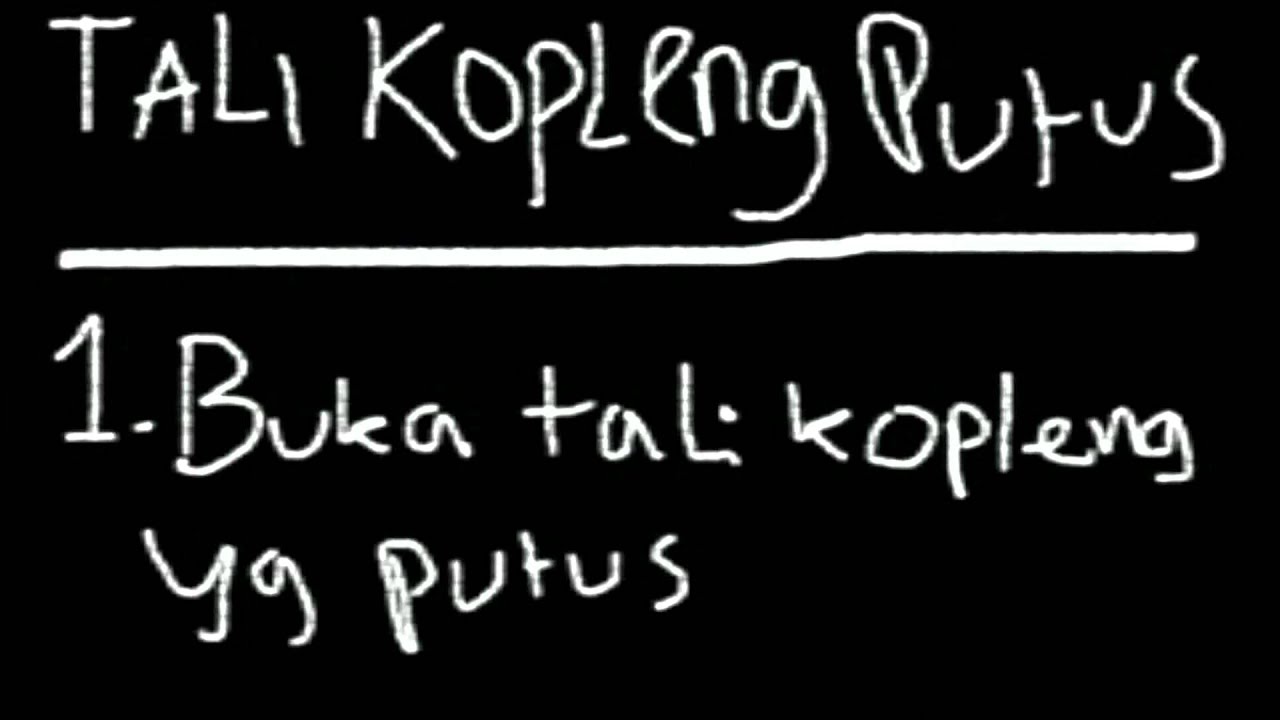 TALI KOPLENG PUTUS
1. Buka tali kopleng
yg putus